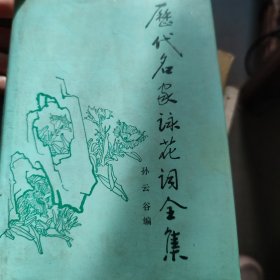 歷代名家詠花词全集
孙云谷编